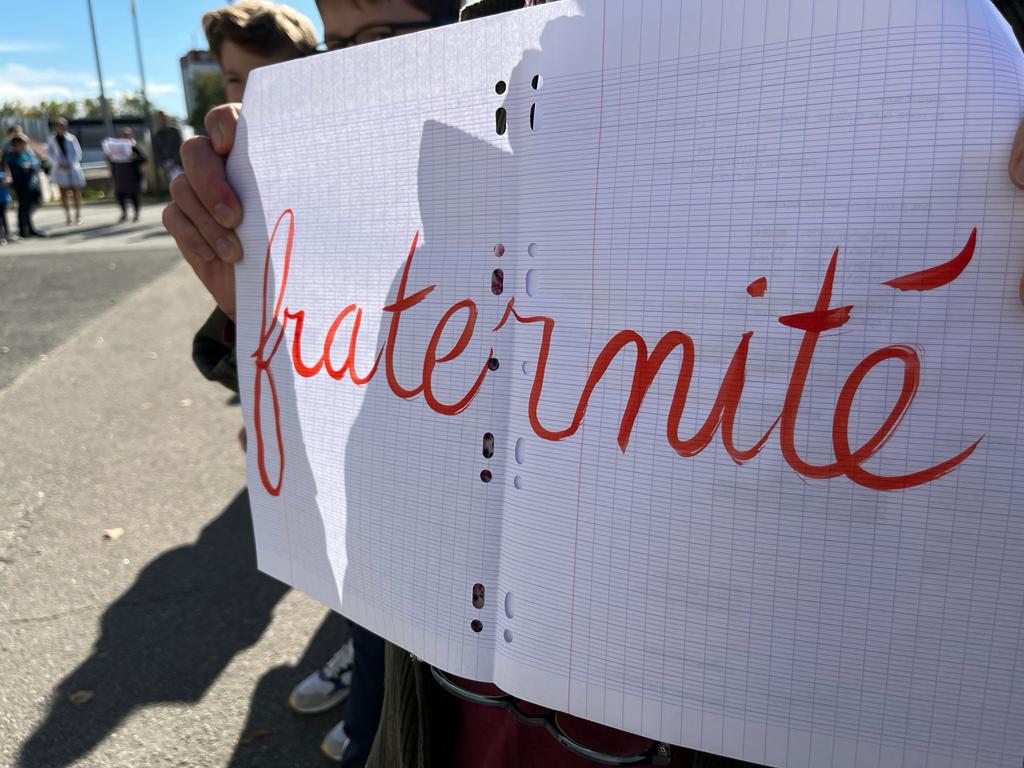 fraternité